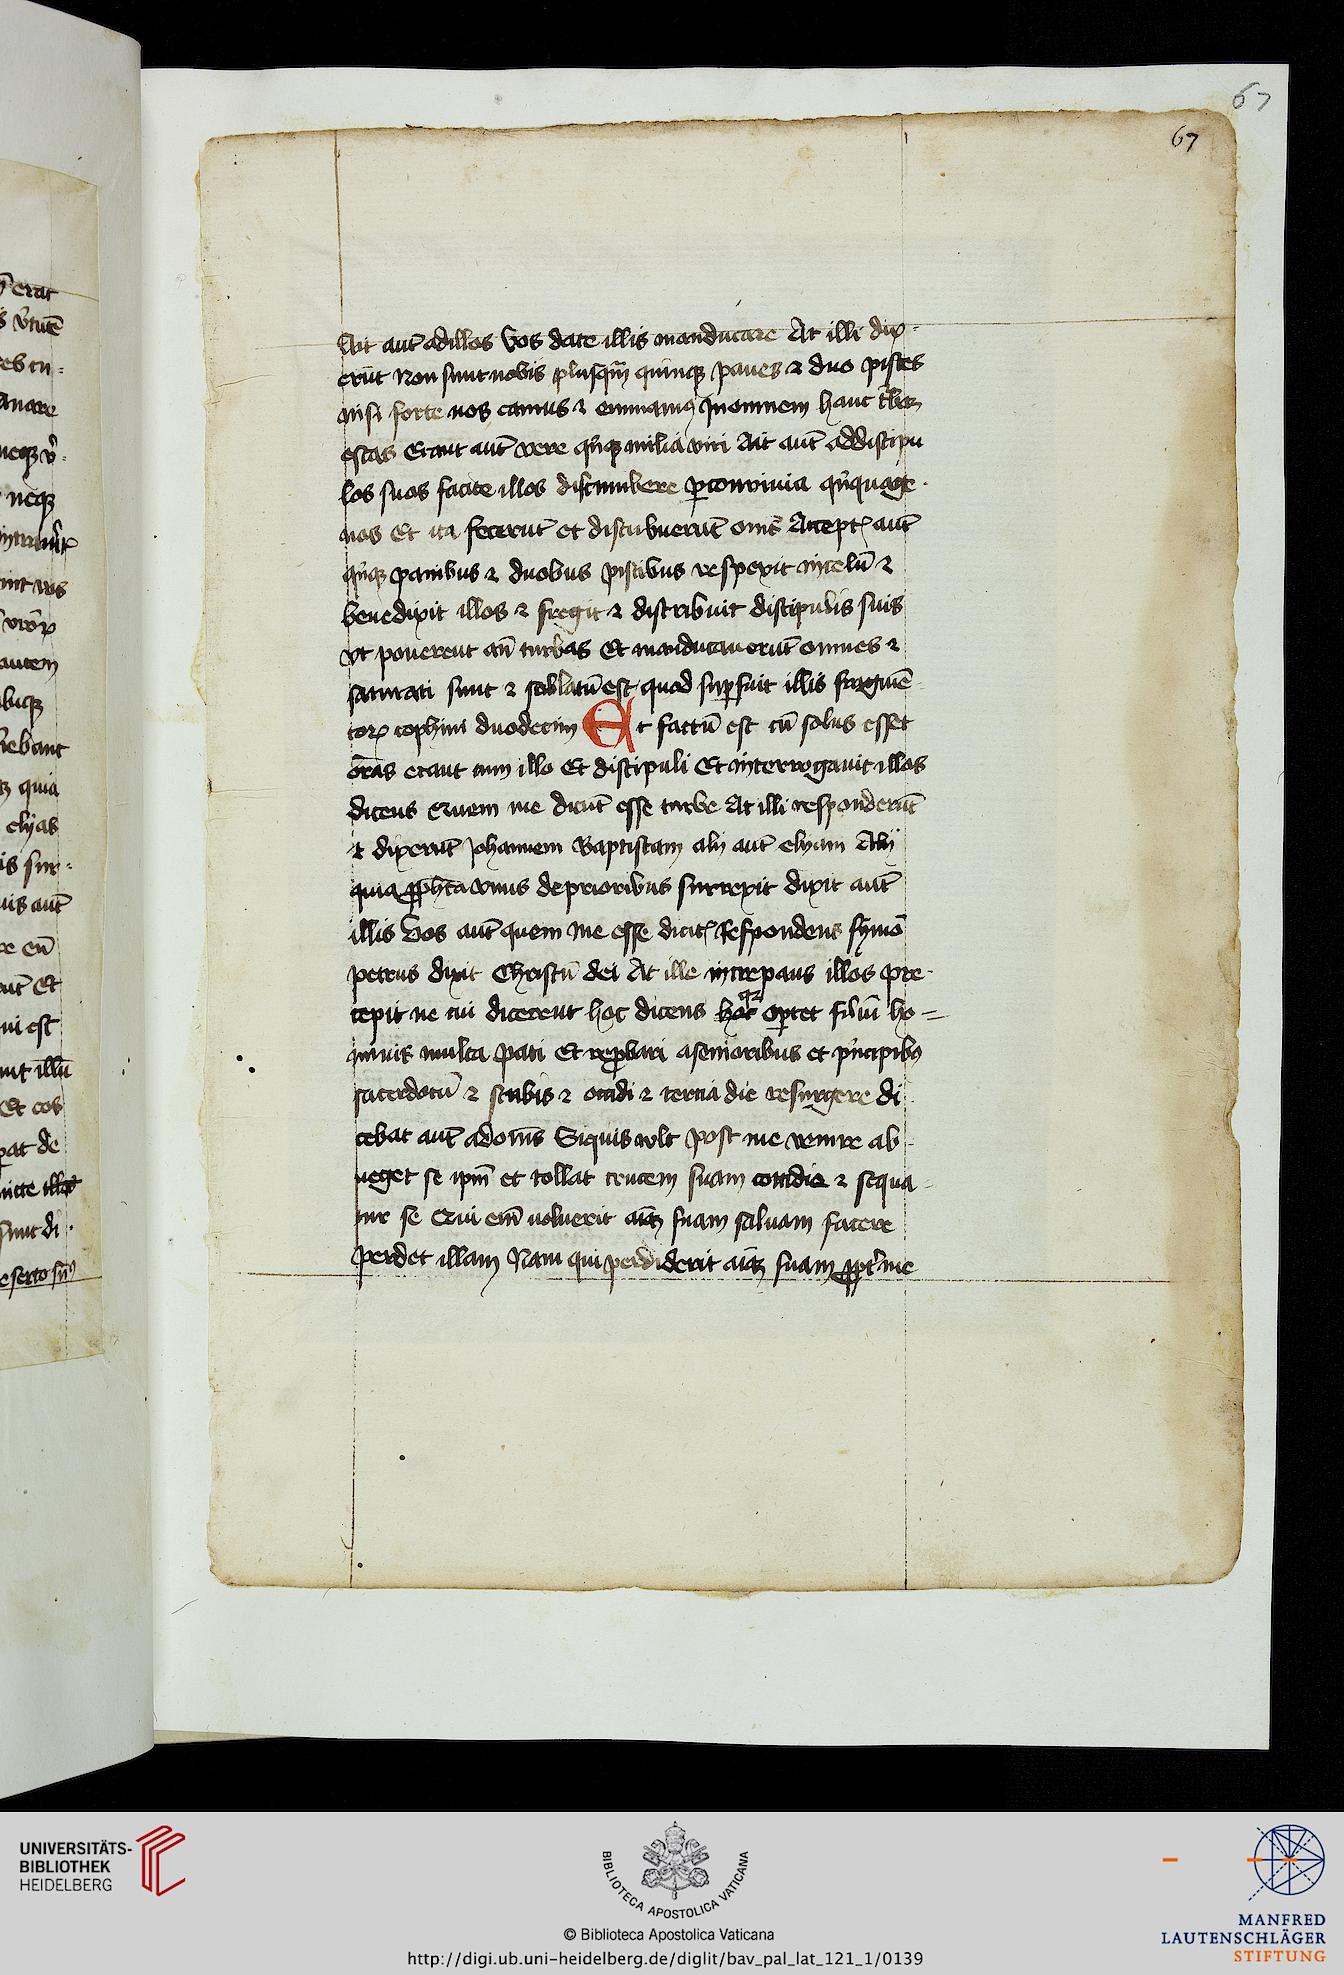 67
67
Ait aut̄ ad illos Vos date illis manducare At illi dix-
erūt Non sunt nobis plusqm̄ quinqꝫ panes ⁊ duo pisces
nisi forte nos eamus ⁊ emmamꝰ Jn omnem hanc
escas Erant aut̄ vere qͥnqꝫ milia viri Ait aut̄ ad discipu
los suos facite illos discumbere ꝑ conviuia qͥnquage-
nos Et ita fecerut̄ et discubuerut̄ om̄s Accept aut̄
qͥnqꝫ panibus ⁊ duobus piscibus respexit in celū ⁊
benedixit illos ⁊ fregit ⁊ distribuit discipulis suis
vt ponerent an̄ turbas Et manducauerut̄ omnes ⁊
saturati sunt ⁊ sublatū est quod suꝑfuit illis fragmē
toꝝ cophini duodecim Et factū est cū solus esset
orās erant cum illo Et discipuli Et interrogauit illos
dicens Quem me dicūt esse turbe At illi responderūt
⁊ dixerut̄ Johannem Baptistam alij aut̄ elyam Alij
quia ꝓpheta vnus de prioribus surrexit dixit aut̄
illis Vos aut̄ quem me esse dicit Respondens symō
petrus dixit Christū dei At ille increpans illos pre-
cepit ne cui dicerent hoc dicens qꝛ oꝑtet filiū ho=
minis multa pati Et reꝓbari a senioribus et pͥncipibꝰ
sacerdotū ⁊ scribis ⁊ occidi ⁊ tercia die resurgere di
cebat aut̄ ad om̄s Siquis wlt post me venire ab-
neget se ipm̄ et tollat crucem suam cottidie ⁊ sequa-
tur se Qui em̄ uoluerit aīaꝫ suam saluam facere
perdet illam Nam qui perdiderit aīaꝫ suam ꝓpt̕ me
erat
neqꝫ
autem
quia
elyas
Et
illū
Et eos
de
UNIVERSITÄTS-
BIBLIOTHEK
HEIDELBERG
BIBLIOTECA APOSTOLICA VATICANA
© Biblioteca Apostolica Vaticana
http://digi.ub.uni-heidelberg.de/diglit/bav_pal_lat_121_1/0139
MANFRED
LAUTENSCHLÄGER
STIFTUNG